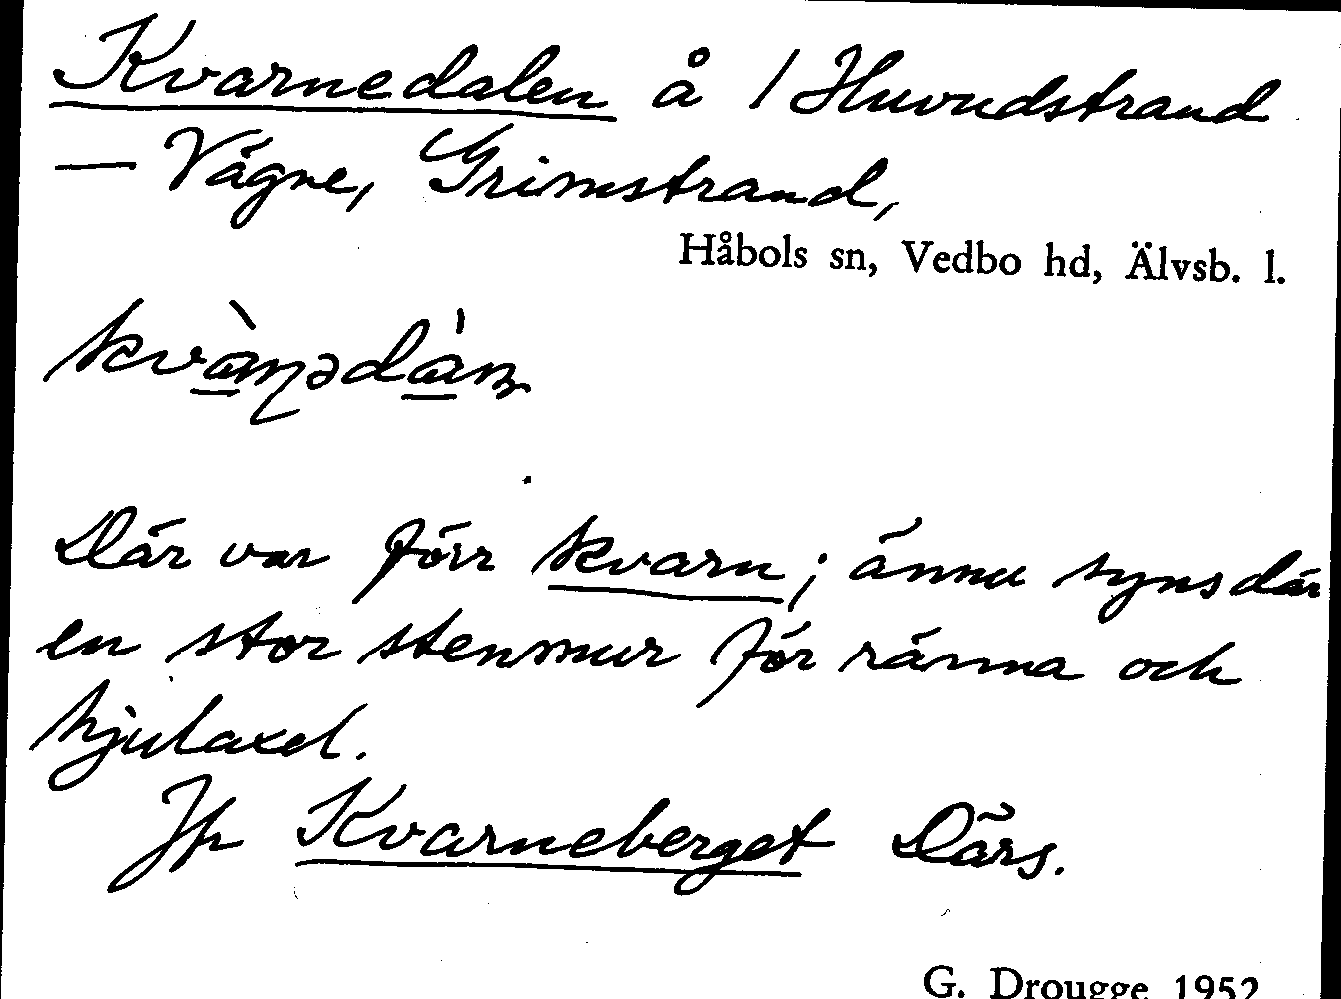 Kvarnedalen å 1 Huvudstrand
— Vägne, Grimstrand,
Håbols sn, Vedbo hd, Älvsb. l.
Där var förr kvarn; ännu syns där
en stor stenmur för ränna och
hjulaxel.
Jfr Kvarneberget Därs.
G. Drougge 1952